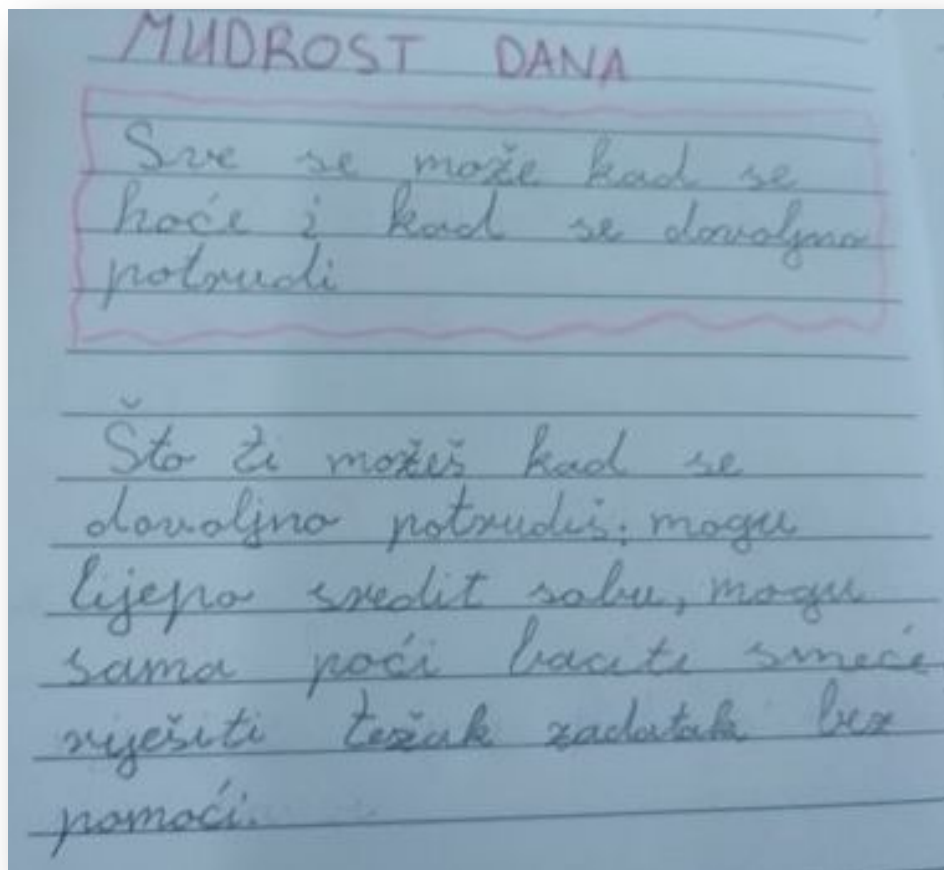 MUDROST DANA
Sve se može kad se
hoće i kad se dovoljno
potrudi
Što ti možeš kad se
dovoljno potrudiš; mogu
lijepo sredit sobu, mogu
sama poći baciti smeće
riješiti težak zadatak bez
pomoći.